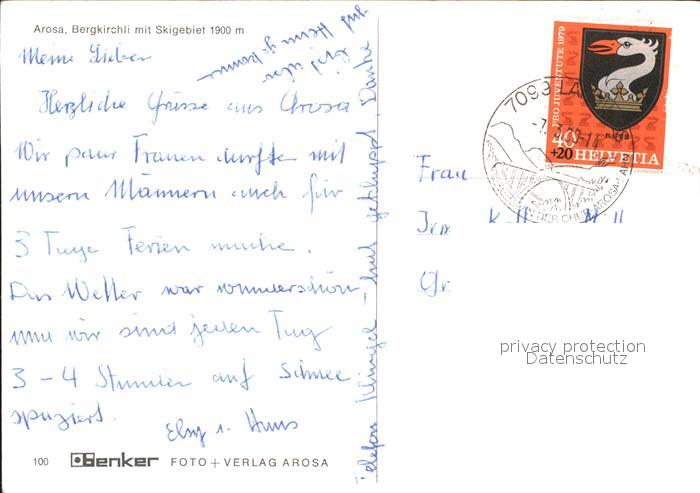 Arosa, Bergkirchli mit Skigebiet 1900 m
Meine Lieben
Herzliche Grüsse aus Arosa
Wir paar Frauen durften mit
unsern Männern auch für
3 Tage Ferien mache.
Das Wetter war wunderschön,
und wir sind jeden Tag
3-4 Stunden auf Schnee
spaziert.
Elsy u. Hans
Telefon Klingel hat geklappt, Danke
Frau
PRO JUVENTUTE 1979
40
+20 HELVETIA
7093 LA
CHUR-AROSA
privacy protection
Datenschutz
100 Benker FOTO+VERLAG AROSA